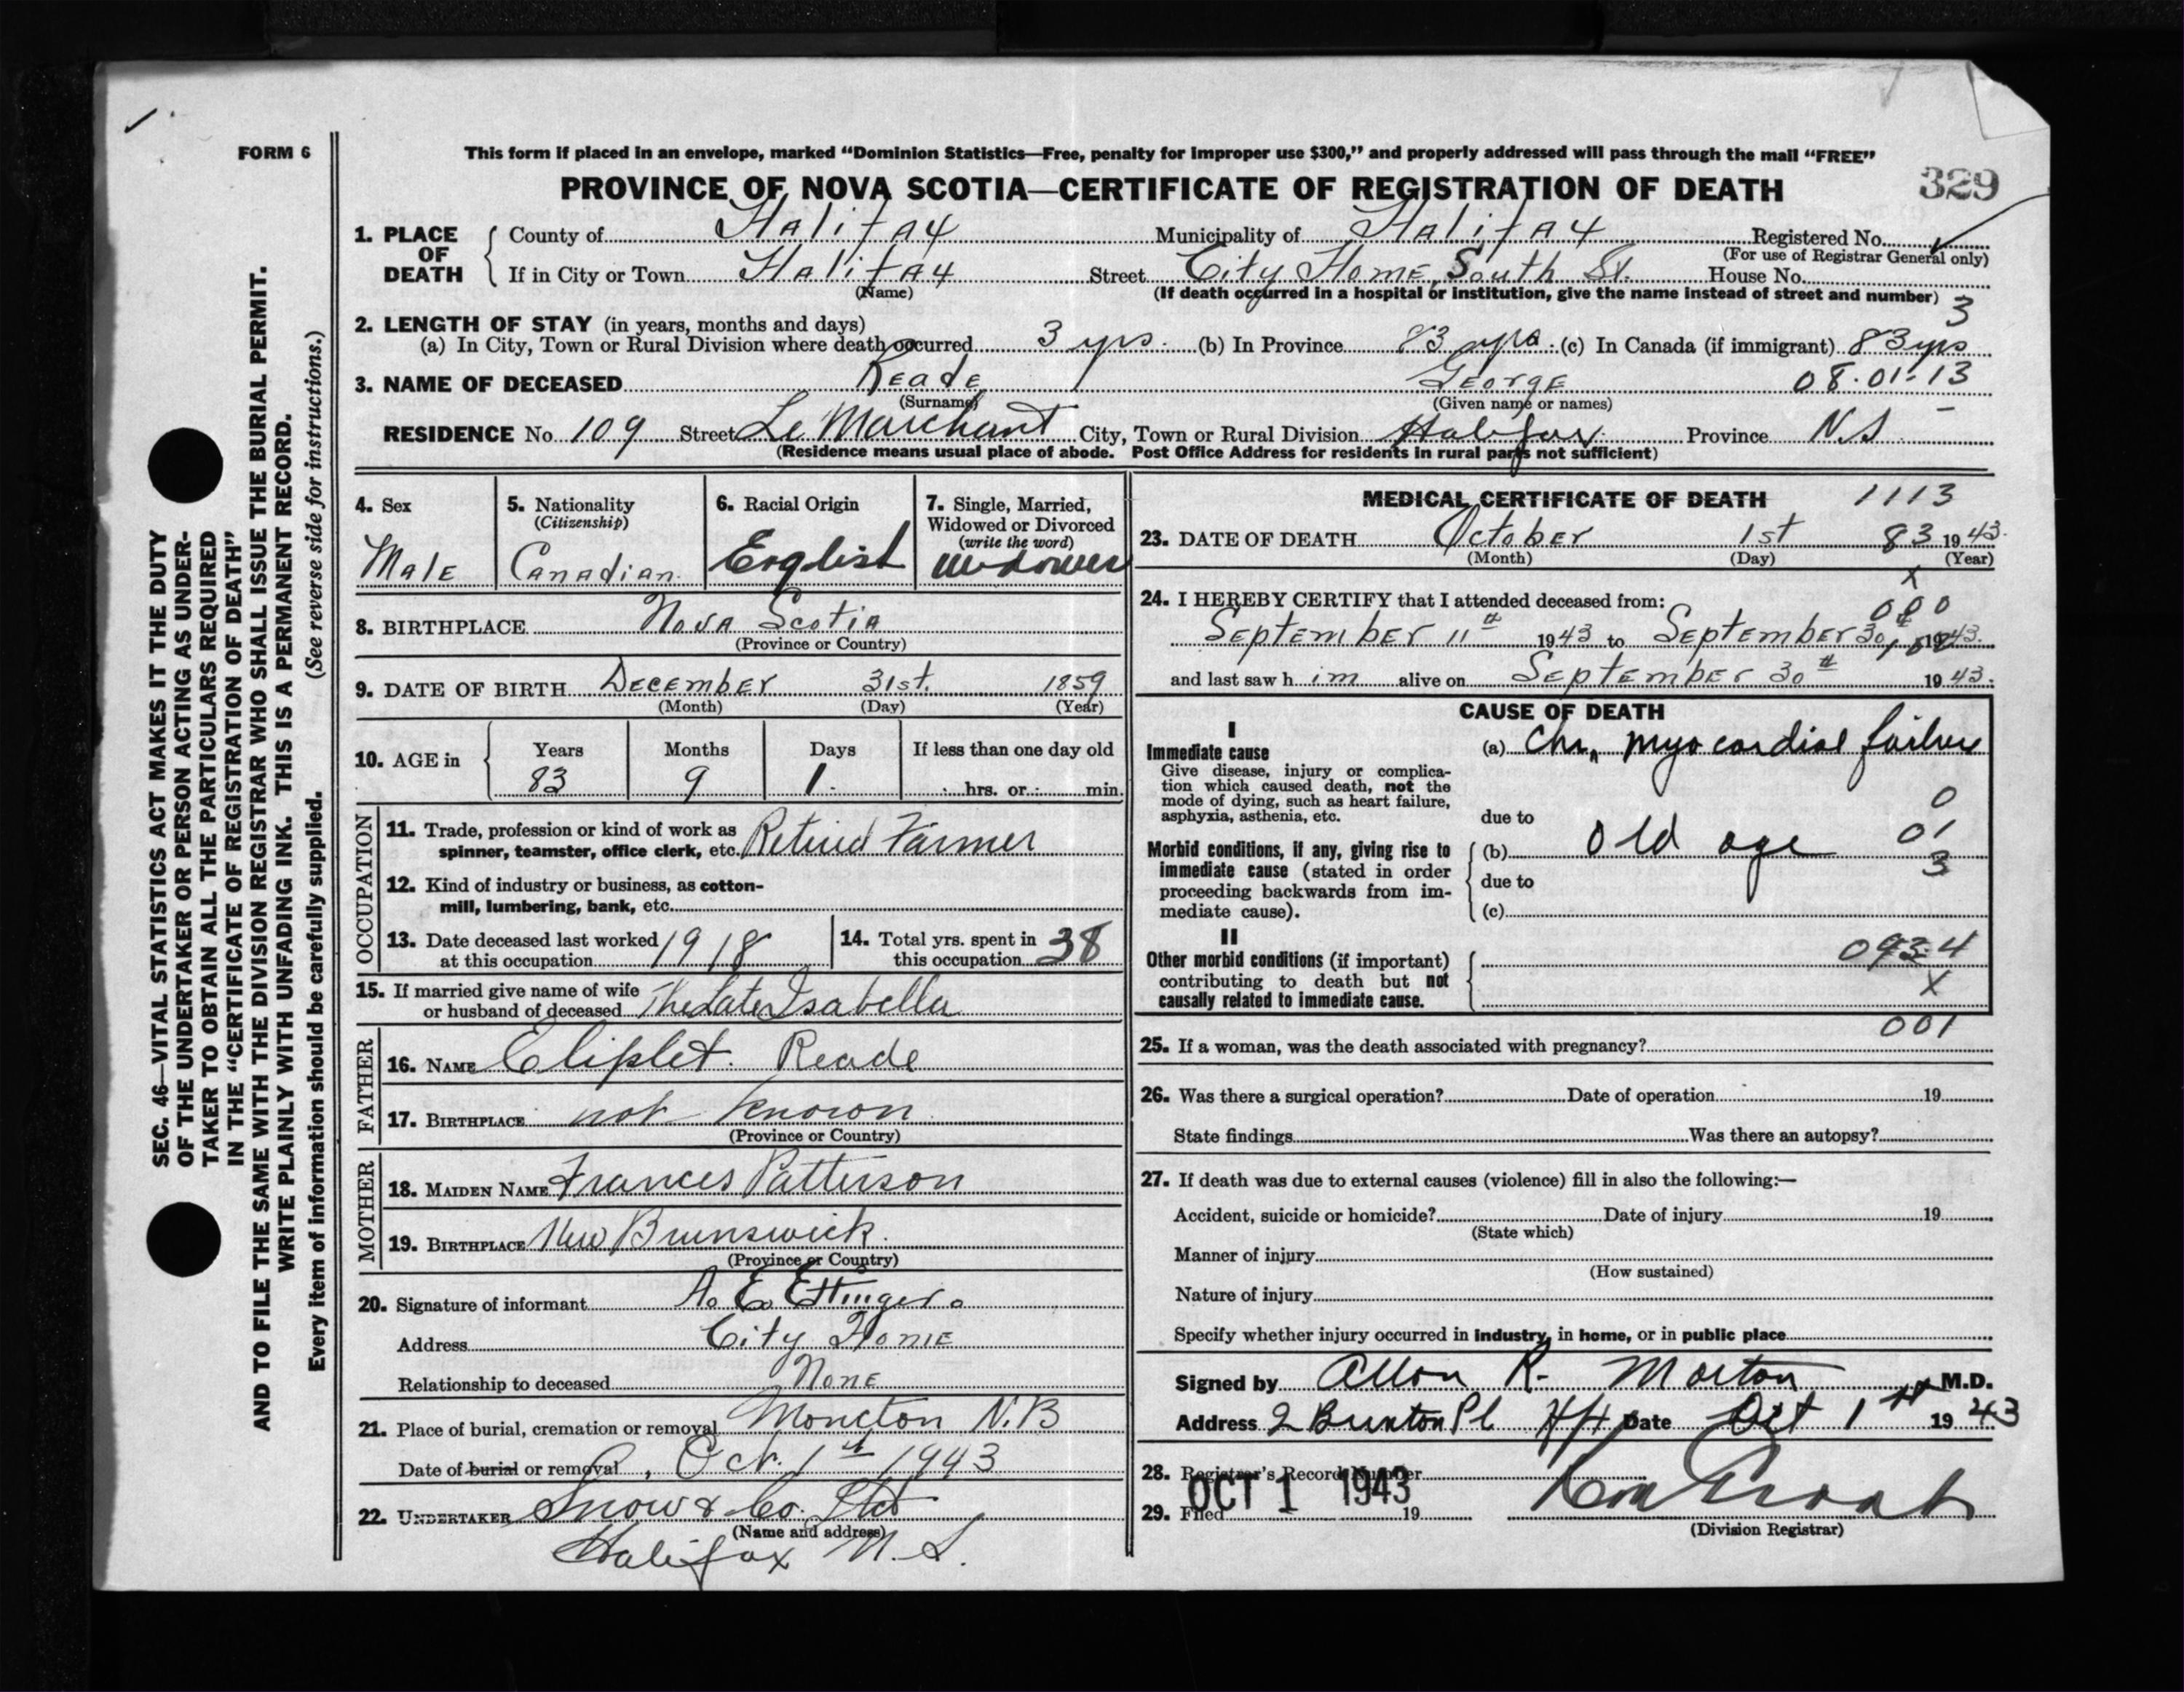 FORM 6
This form if placed in an envelope, marked “Dominion Statistics—Free, penalty for improper use $300,” and properly addressed will pass through the mail “FREE”
PROVINCE OF NOVA SCOTIA—CERTIFICATE OF REGISTRATION OF DEATH 329
1. PLACE OF DEATH
County of Halifax Municipality of Halifax Registered No.
(For use of Registrar General only)
If in City or Town Halifax Street City Home, South St. House No.
(Name) (If death occurred in a hospital or institution, give the name instead of street and number) 3
2. LENGTH OF STAY (in years, months and days)
(a) In City, Town or Rural Division where death occurred 3 yrs. (b) In Province 83 yrs. (c) In Canada (if immigrant) 83 yrs
3. NAME OF DECEASED Reade George 08.01.13
(Surname) (Given name or names)
RESIDENCE No. 109 Street Le Marchant City, Town or Rural Division Halifax Province N.S.
(Residence means usual place of abode. Post Office Address for residents in rural parts not sufficient)
4. Sex
Male
5. Nationality
(Citizenship)
Canadian
6. Racial Origin
English
7. Single, Married,
Widowed or Divorced
(write the word)
Widower
8. BIRTHPLACE Nova Scotia
(Province or Country)
9. DATE OF BIRTH December 31st. 1859
(Month) (Day) (Year)
10. AGE in
Years Months Days If less than one day old
83 9 1. hrs. or min.
OCCUPATION
11. Trade, profession or kind of work as
spinner, teamster, office clerk, etc. Retired Farmer
12. Kind of industry or business, as cotton-
mill, lumbering, bank, etc.
13. Date deceased last worked
at this occupation 1918
14. Total yrs. spent in
this occupation 38
15. If married give name of wife
or husband of deceased The Late Isabella
FATHER
16. NAME Eliplet. Reade
17. BIRTHPLACE not known
(Province or Country)
MOTHER
18. MAIDEN NAME Frances Patterson
19. BIRTHPLACE New Brunswick.
(Province or Country)
20. Signature of informant A. E. Ettinger.
Address City Home
Relationship to deceased None
21. Place of burial, cremation or removal Moncton N.B
Date of burial or removal, Oct. 1st 1943
22. UNDERTAKER Snow & Co. Ltd
(Name and address)
Halifax N.S.
MEDICAL CERTIFICATE OF DEATH 1113
23. DATE OF DEATH October 1st 83 1943.
(Month) (Day) (Year)
x
24. I HEREBY CERTIFY that I attended deceased from: 000
September 11th 1943 to September 30, 1943.
and last saw him alive on September 30th 1943.
CAUSE OF DEATH
I
Immediate cause
Give disease, injury or complica-
tion which caused death, not the
mode of dying, such as heart failure,
asphyxia, asthenia, etc.
(a) Chr. myocardial failure
0
due to
Morbid conditions, if any, giving rise to
immediate cause (stated in order
proceeding backwards from im-
mediate cause).
(b) Old age 01
3
due to
(c)
II
Other morbid conditions (if important)
contributing to death but not
causally related to immediate cause.
X
001
25. If a woman, was the death associated with pregnancy?
26. Was there a surgical operation? Date of operation 19
State findings Was there an autopsy?
27. If death was due to external causes (violence) fill in also the following:—
Accident, suicide or homicide? Date of injury 19
(State which)
Manner of injury
(How sustained)
Nature of injury
Specify whether injury occurred in industry, in home, or in public place
Signed by Allon R. Morton M.D.
Address 2 Buxton Pl Hfx Date Oct 1st 1943
28. Registrar's Record Number
OCT 1 1943
29. Filed 19
(Division Registrar)
SEC. 46—VITAL STATISTICS ACT MAKES IT THE DUTY
OF THE UNDERTAKER OR PERSON ACTING AS UNDER-
TAKER TO OBTAIN ALL THE PARTICULARS REQUIRED
IN THE “CERTIFICATE OF REGISTRATION OF DEATH”
AND TO FILE THE SAME WITH THE DIVISION REGISTRAR WHO SHALL ISSUE THE BURIAL PERMIT.
WRITE PLAINLY WITH UNFADING INK. THIS IS A PERMANENT RECORD.
Every item of information should be carefully supplied. (See reverse side for instructions.)